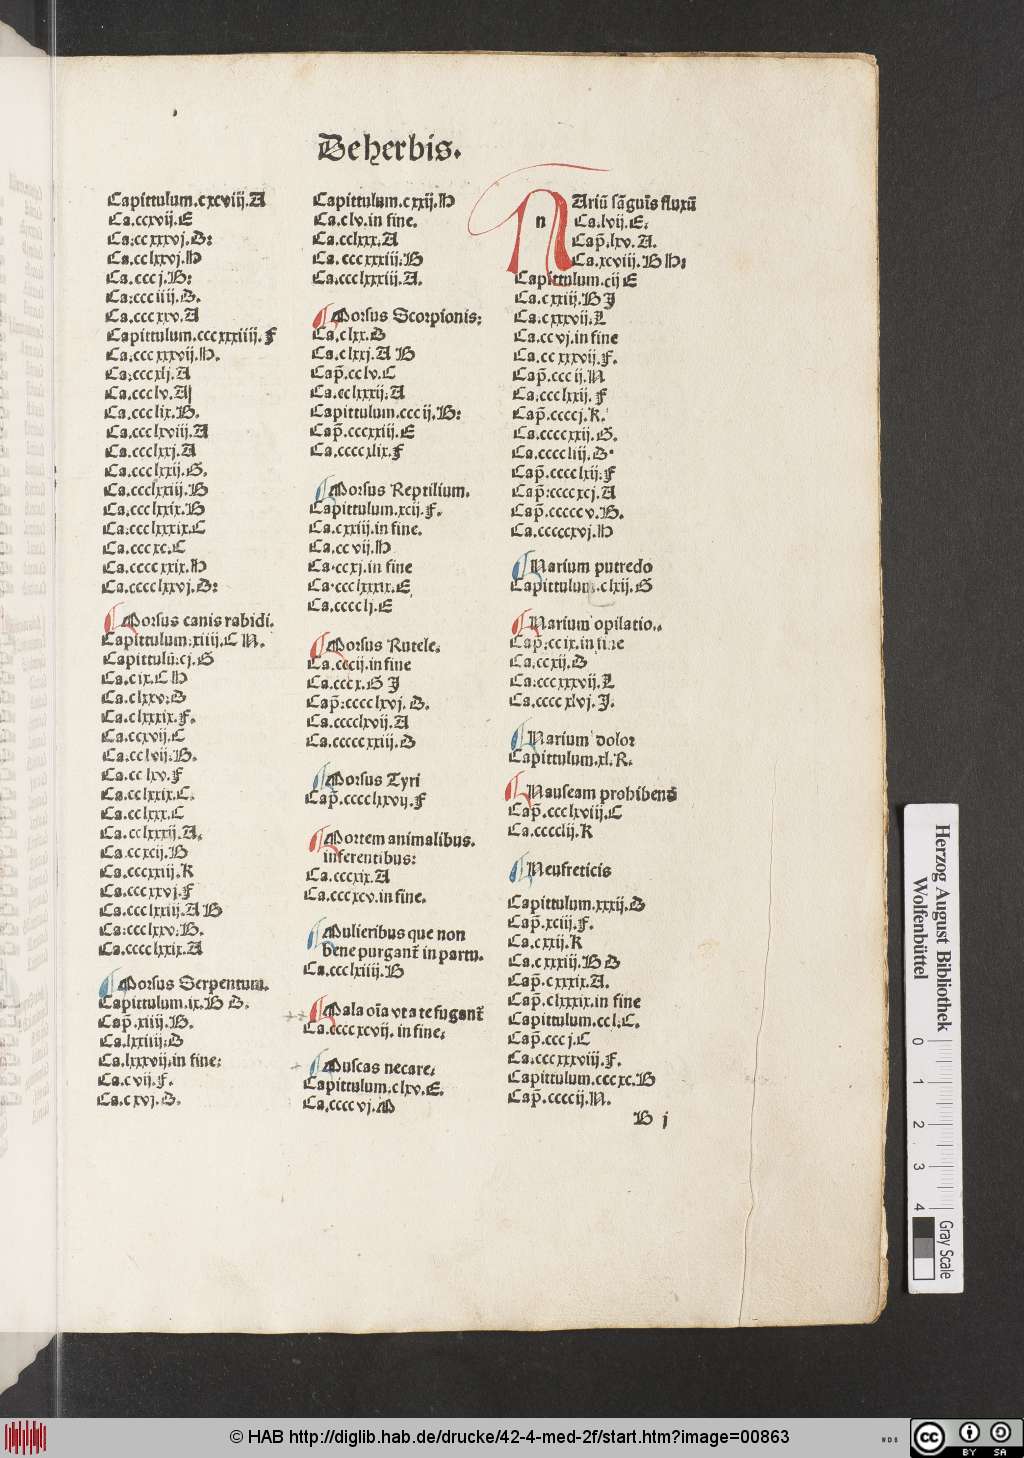 De herbis.
Capittulum.cxcviij.A
Ca.ccxvij.E
Ca:ccxxxvj.D:
Ca.cclxxvj.H
Ca.cccj.B:
Ca:ccciiij.D.
Ca.cccxxv.A
Capittulum.cccxxxiiij.F
Ca.cccxxxvij.H.
Ca:cccxlj.A
Ca.ccclv.A
Ca.ccclix.B.
Ca.ccclxviij.A
Ca.ccclxxj.A
Ca.ccclxxij.G.
Ca.ccclxxiij.B
Ca.ccclxxix.B
Ca:ccclxxxix.C
Ca.cccxc.C
Ca.ccccxxix.H
Ca.cccclxxvj.D:
Morsus canis rabidi.
Capittulum:xiiij.C N.
Capittulū:cj.G
Ca.cix.C H
Ca.clxxv:D
Ca.clxxxix.F.
Ca.ccxvij.C
Ca.cclvij:B.
Ca.cclxv.F
Ca.cclxxix.C.
Ca.cclxxx.C
Ca.cclxxxij.A.
Ca.ccxcij.B
Ca.cccxxiij.K
Ca.cccxxvj.F
Ca.ccclxxiij.A B
Ca:ccclxxv:B.
Ca.cccclxxix.A
Morsus Serpentum.
Capittulum.ix.B D.
Cap̄.xiiij.B.
Ca.lxxiiij:D
Ca.lxxxvij.in fine:
Ca.cvij.F.
Ca.cxvj.D.
Capittulum.cxxij.H
Ca.clv.in fine.
Ca.cclxxx.A
Ca.cccxxxiij.B
Ca.ccclxxxiij.A.
Morsus Scorpionis:
Ca.clxx.D
Ca.clxxj.A B
Cap̄.cclv.C
Ca.cclxxxij:A
Capittulum.cccij.B:
Cap̄.cccxxiij.E
Ca.ccccxlix.F
Morsus Reptilium.
Capittulum.xcij.F.
Ca.cxxiij.in fine.
Ca.ccvij.H
Ca.ccxj.in fine
Ca.ccclxxxix.E
Ca.cccclj.E
Morsus Rutele.
Ca.cccij.in fine
Ca.cccx.G J
Cap̄:cccclxvj.D.
Ca.cccclxvij.A
Ca.cccccxxiij.D
Morsus Tyri
Cap̄.cccclxxvij.F
Mortem animalibus.
inferentibus:
Ca.cccxix.A
Ca.cccxcv.in fine.
Mulieribus que non
bene purganť in partu.
Ca.ccclxiiij.B
Mala oīa vt a te fuganť
Ca.ccccxcvij.in fine.
Muscas necare:
Capittulum.clxv.E.
Ca.ccccvj.M
n
NAriū sāguīs fluxū
Ca.lvij.E.
Cap̄.lxv.A.
Ca.xcviij.B H:
Capittulum.cij E
Ca.cxxiij.B J
Ca.cxxxvij.L
Ca.ccvj.in fine
Ca.ccxxxvij.F.
Cap̄.cccij.N
Ca:ccclxxij.F
Cap̄.ccccj.K.
Ca.ccccxxij.G.
Ca.ccccliij.D.
Cap̄.cccclxij.F
Cap̄:ccccxcj.A
Cap̄.cccccv.B.
Ca.cccccxvj.H
Narium putredo
Capittulum.clxij.G
Narium opilatio..
Cap̄:ccix.in fine
Ca:ccxij.D
Ca:cccxxxvij.L
Ca.ccccxlvj.J.
Narium dolor
Capittulum.xl.R.
Nauseam prohibend̄
Cap̄.ccclxviij.C
Ca.cccclij.K
Neufreticis
Capittulum.xxxij.D
Cap̄.xciij.F.
Ca.cxxij.K
Ca.cxxxiij.B D
Cap̄.cxxxix.A.
Cap̄.clxxxix.in fine
Capittulum.ccl:C.
Cap̄.cccj.C
Ca:cccxxxviij.F.
Capittulum.cccxc.B
Cap̄.ccccij.N.
B j
Herzog August Bibliothek
Wolfenbüttel
0 1 2 3 4
Gray Scale
© HAB http://diglib.hab.de/drucke/42-4-med-2f/start.htm?image=00863
WDB
cc BY SA